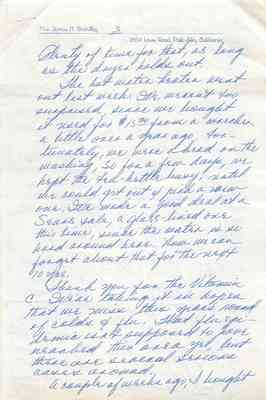 Mrs. James M. 3
Road, Palo Alto, California
Plenty of time for that, as long
as the dryer holds out.
The hot water heater went
out last week. We weren't too
surprised, since we bought
it used for $15.00 from a rancher,
a little over a year ago. For-
tunately, we were ahead on the
washing, so for a few days, we
kept the tea-kettle busy, until
we could get out & pick a new
one. We made a good deal at a
Sears sale, a glass-lined one
this time, since the water is so
hard around here. Now we can
forget about that for the next
10 yrs.
Thank you for the Vitamin
C. We're taking it in hopes
that we miss this year's round
of colds & flu. That flu epi-
demic isn't supposed to have
reached this area yet, but
there are several serious
cases around.
A couple of weeks ago, I bought